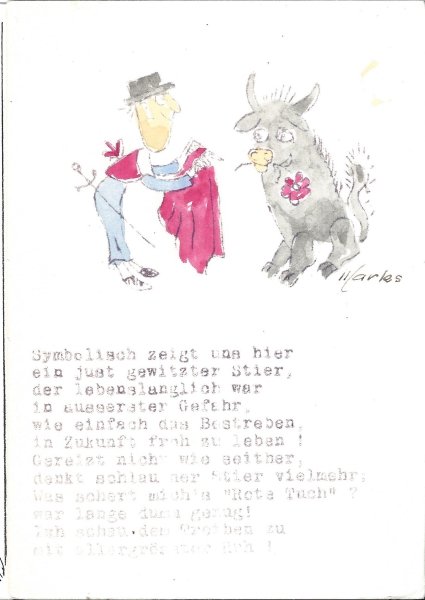 Markes
Symbolisch zeigt uns hier
ein just gewitzter Stier,
der lebenslänglich war
in äusserster Gefahr,
wie einfach das Bestreben,
in Zukunft froh zu leben !
Gereizt nicht wie seither,
denkt schlau der Stier vielmehr:
Was schert mich's "Rote Tuch" ?
war lange dumm genug!
Ich schau dem Treiben zu
mit allergrösster Ruh !